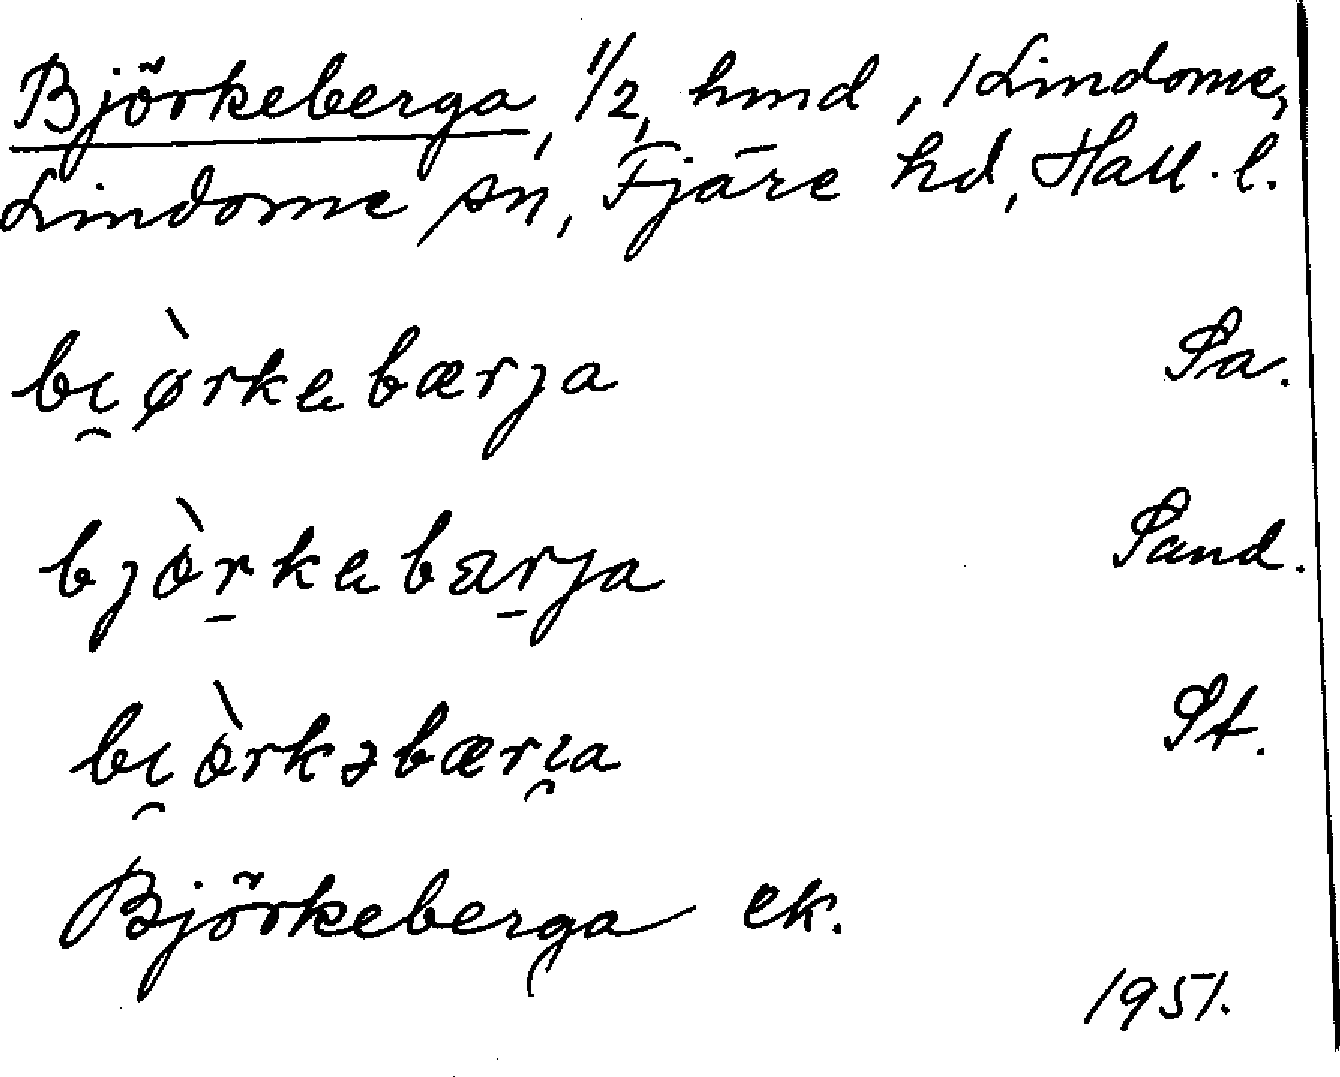 Björkeberga, 1/2, hmd, i Lindome,
Lindome sn, Fjäre hd, Hall. l.
bɩ̯ø̀rkebærja Sa.
bjòṟkebæṟja Sand.
bɩ̯òrkəbærɩ̯a St.
Björkeberga ek.
1951.